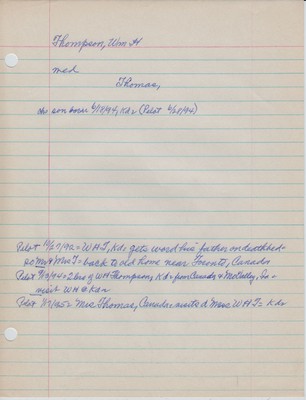 Thompson, Wm H
med
Thomas,
son born 6/19/94, Kdx (Pilot 6/28/94)
Pilot 10/27/92 = W H T, Kdx gets word his father on deathbed -
so Mr & Mrs T = back to old home near Toronto, Canada
Pilot 7/12/94 = 2 bros of WH Thompson, Kdx from Canada & McNally, Ia -
visit WH @ Kdx
Pilot Mrs Thomas, Canada = visits d Mrs W H T = Kdx